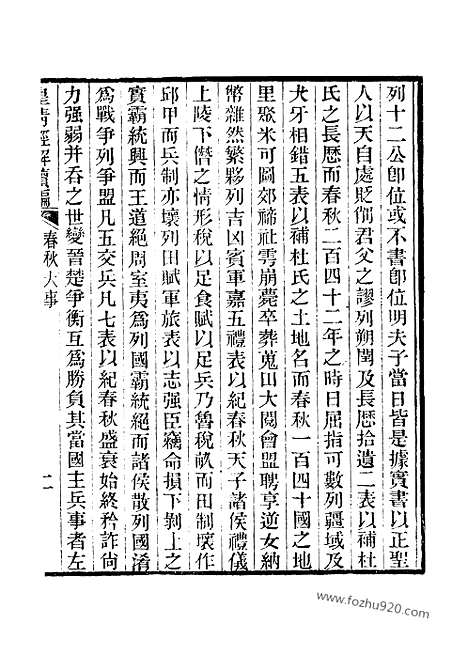 列十二公卽位或不書卽位明夫子當日皆是據實書以正聖
人以天自處貶削君父之謬列朔閏及長歷拾遺二表以補杜
氏之長歷而春秋二百四十二年之時日屈指可數列疆域及
犬牙相錯五表以補杜氏之土地名而春秋一百四十國之地
里聚米可圖郊禘社雩崩薨卒葬蒐田大閱會盟聘享逆女納
幣雜然繁夥列吉凶賓軍嘉五禮表以紀春秋天子諸侯禮儀
上陵下僭之情形稅以足食賦以足兵乃魯稅畝而田制壞作
邱甲而兵制亦壞列田賦軍旅表以志强臣竊命損下剝上之
實霸統興而王道絕周室夷爲列國霸統絕而諸侯散列國淆
爲戰爭列爭盟凡五交兵凡七表以紀春秋盛衰始終矜詐尙
力强弱并吞之世變晉楚爭衡互爲勝負其當國主兵事者左
皇淸經解續編
春秋大事
二
www.fozhu920.com